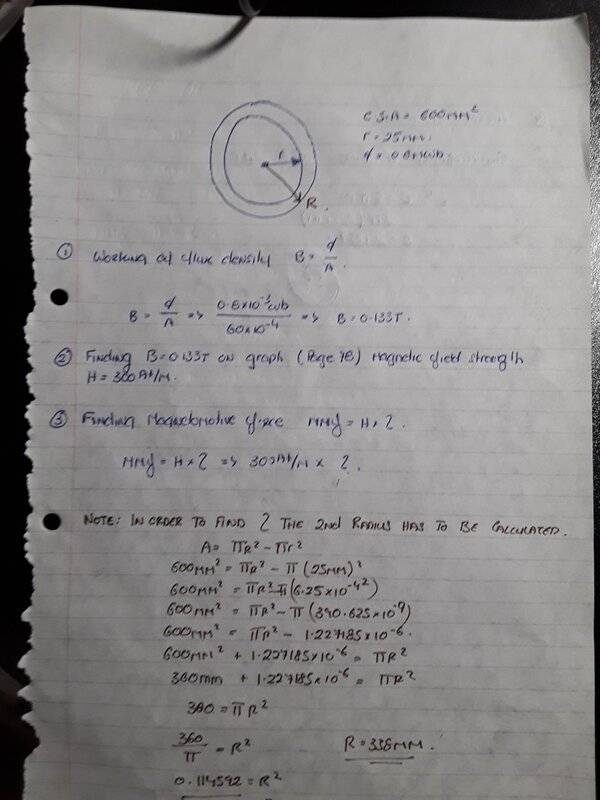 C.S.A = 600mm²
r = 25mm
φ = 0.8mWb.
r
R.
① Working out flux density B = φ/A.
B = φ/A => 0.8×10⁻³wb/60×10⁻⁴ => B = 0.133T.
② Finding B=0.133T on graph (Page 48) Magnetic field strength
H = 300At/M.
③ Finding Magnetomotive force MMf = H × l.
MMf = H × l => 300At/M × l.
NOTE: IN ORDER TO FIND l THE 2ND RADIUS HAS TO BE CALCULATED.
A = πR² - πr²
600mm² = πR² - π(25mm)²
600mm² = πR² - π(6.25×10⁻⁴²)
600mm² = πR² - π(390.625×10⁻⁹)
600mm² = πR² - 1.227185×10⁻⁶.
600mm² + 1.227185×10⁻⁶ = πR²
360mm + 1.227185×10⁻⁶ = πR²
360 = πR²
360/π = R² R = 338MM.
0.114592 = R²